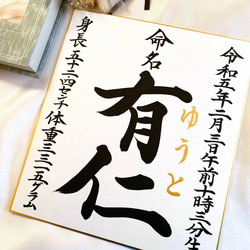 令和五年二月三日午前十時三分生
命名
有仁
ゆうと
身長五十二四センチ体重三三二五グラム